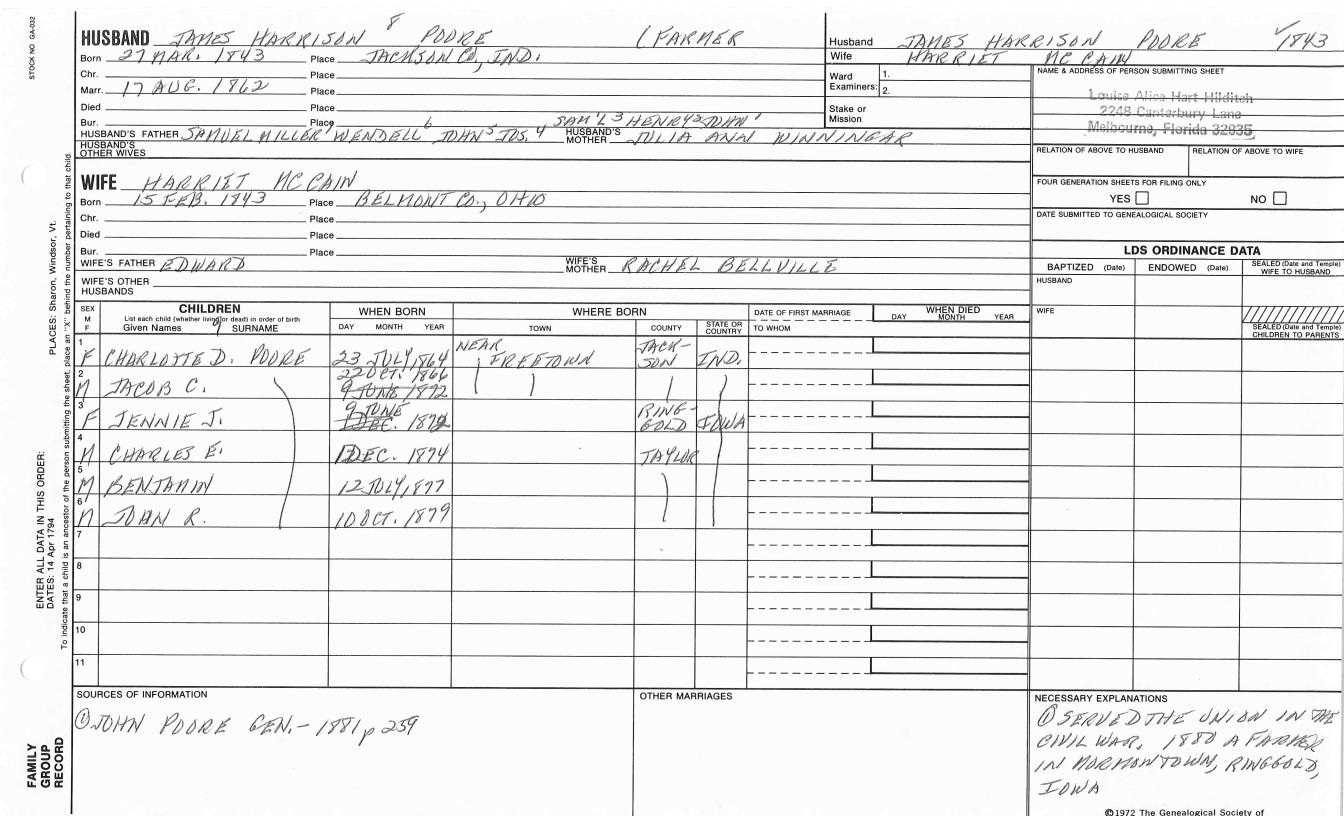 STOCK NO GA-032
8
HUSBAND JAMES HARRISON POORE (FARMER
Born 27 MAR. 1843 Place JACKSON CO., IND.
Chr. Place
Marr. 17 AUG. 1862 Place
Died Place
Bur. Place
SAM'L 3 HENRY 2 JOHN 1
HUSBAND'S FATHER SAMUEL MILLER 7 WENDELL 6 JOHN 5 JOS. 4 HUSBAND'S MOTHER JULIA ANN WINNINGAR
HUSBAND'S OTHER WIVES
WIFE HARRIET MC CAIN
Born 15 FEB. 1843 Place BELMONT CO., OHIO
Chr. Place
Died Place
Bur. Place
WIFE'S FATHER EDWARD WIFE'S MOTHER RACHEL BELLVILLE
WIFE'S OTHER HUSBANDS
Husband JAMES HARRISON POORE 1843
Wife HARRIET MC CAIN
Ward Examiners: 1.
2.
Stake or Mission
NAME & ADDRESS OF PERSON SUBMITTING SHEET
Louise Alice Hart Hilditch
2248 Canterbury Lane
Melbourne, Florida 32935
RELATION OF ABOVE TO HUSBAND RELATION OF ABOVE TO WIFE
FOUR GENERATION SHEETS FOR FILING ONLY
YES NO
DATE SUBMITTED TO GENEALOGICAL SOCIETY
LDS ORDINANCE DATA
BAPTIZED (Date) ENDOWED (Date) SEALED (Date and Temple) WIFE TO HUSBAND
HUSBAND
WIFE
SEALED (Date and Temple) CHILDREN TO PARENTS
SEX M F
CHILDREN
List each child (whether living or dead) in order of birth
Given Names 9 SURNAME
WHEN BORN
DAY MONTH YEAR
WHERE BORN
TOWN COUNTY STATE OR COUNTRY
DATE OF FIRST MARRIAGE
TO WHOM
WHEN DIED
DAY MONTH YEAR
1 F CHARLOTTE D. POORE 23 JULY, 1864 NEAR FREETOWN JACKSON IND.
2 M JACOB C. 22 OCT. 1866
9 JUNE 1872
3 F JENNIE J. 9 JUNE
1 DEC. 1872 RINGGOLD IOWA
4 M CHARLES E. 1 DEC. 1874 TAYLOR
5 M BENJAMIN 12 JULY, 1877
6 M JOHN R. 10 OCT. 1879
7
8
9
10
11
SOURCES OF INFORMATION
① JOHN POORE GEN. - 1881, p 259
OTHER MARRIAGES
NECESSARY EXPLANATIONS
① SERVED THE UNION IN THE
CIVIL WAR, 1880 A FARMER
IN MORMONTOWN, RINGGOLD,
IOWA
©1972 The Genealogical Society of
PLACES: Sharon, Windsor, Vt.
ENTER ALL DATA IN THIS ORDER:
DATES: 14 Apr 1794
To indicate that a child is an ancestor of the person submitting the sheet, place an "X" behind the number pertaining to that child.
FAMILY GROUP RECORD